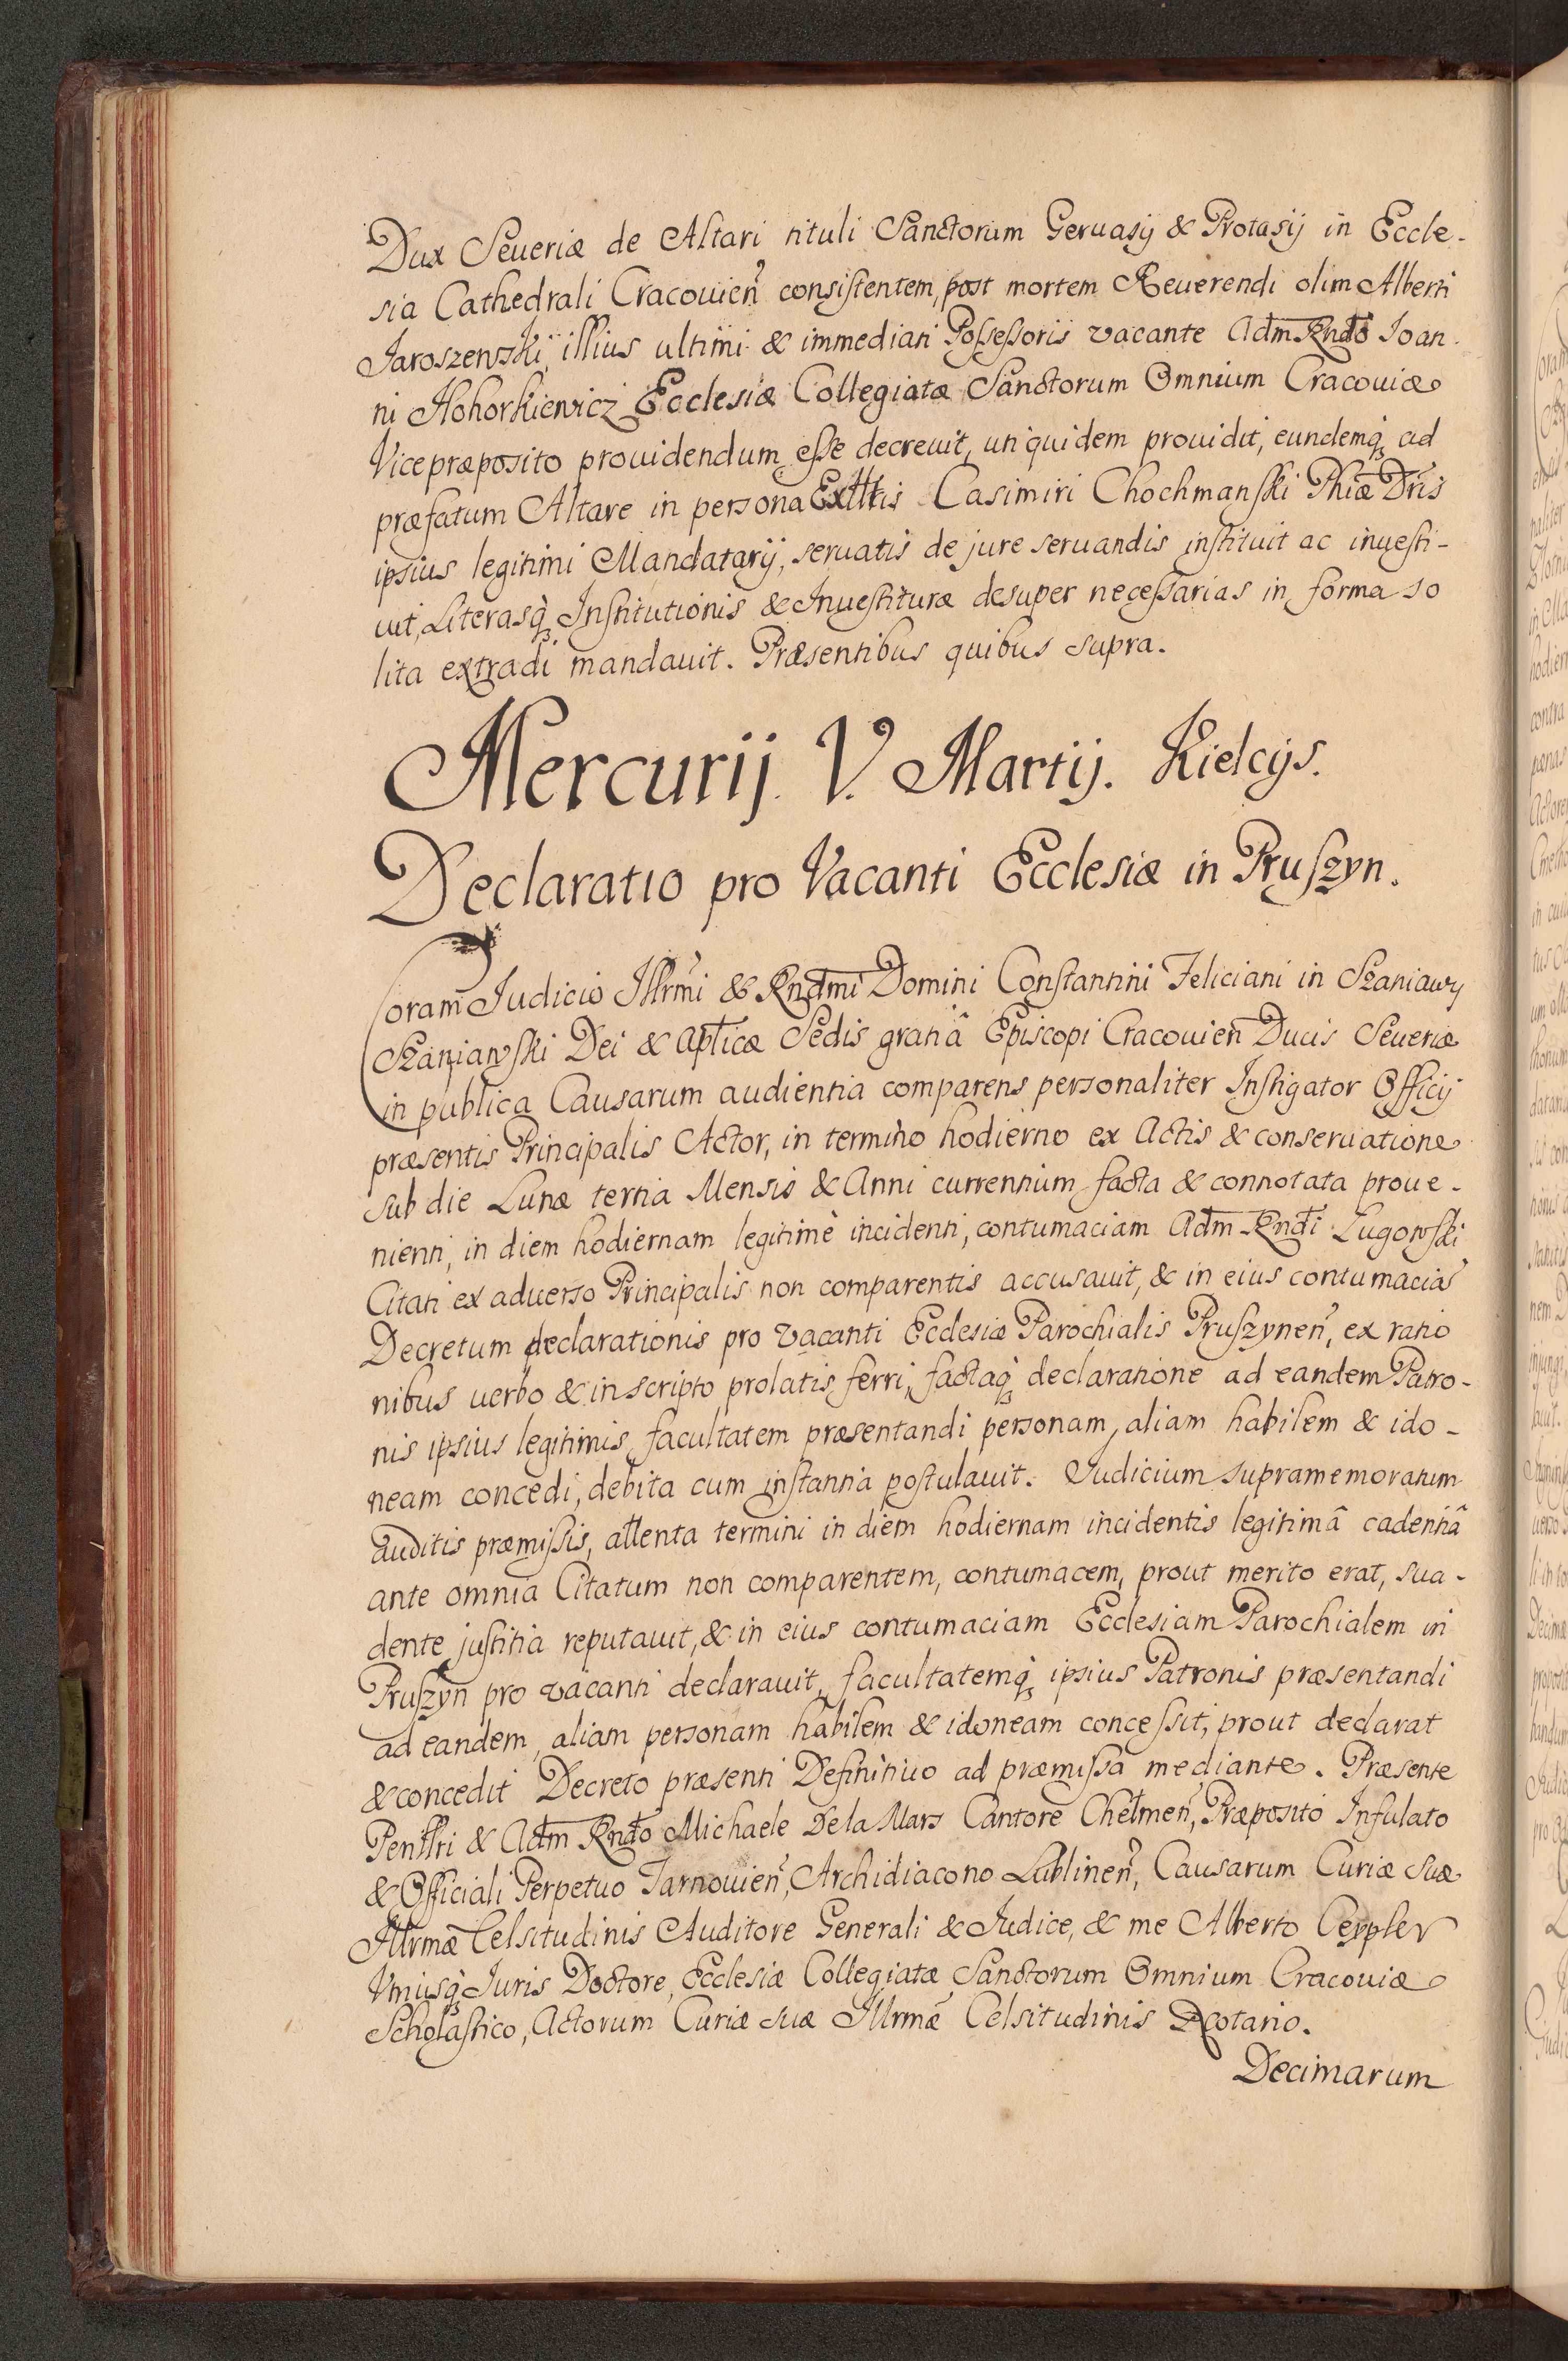 Dux Seueriæ de Altari tituli Sanctorum Geruasij & Protasij in Eccle-
sia Cathedrali Cracouien̄ consistentem, post mortem Reuerendi olim Alberti
Jaroszewski, illius ultimi & immediati Possessoris vacante Adm Rndo Ioan-
ni Mohorkiewicz Ecclesiæ Collegiatæ Sanctorum Omnium Cracouiæ
Vicepræposito prouidendum esse decreuit, uti quidem prouidit, eundemq́ ad
præfatum Altare in persona Exlltis Casimiri Chochmanski Phiæ Dris
ipsius legitimi Mandatarij, seruatis de jure seruandis instituit ac inuesti-
uit, Literasq́ Institutionis & Inuestituræ desuper necessarias in forma so
lita extradi mandauit. Præsentibus quibus supra.
Mercurij V. Martij. Kielcijs.
Declaratio pro Vacanti Ecclesiæ in Pruszyn.
Coram Iudicio Illrmi & Rndmi Domini Constantini Feliciani in Szaniawy
Szaniawski Dei & Aplicæ Sedis gratiâ Episcopi Cracouien̄ Ducis Seueriæ
in publica Causarum audientia comparens personaliter Instigator Officij
præsentis Principalis Actor, in termino hodierno ex Actis & conseruatione
sub die Lunæ tertia Mensis & Anni currentium facta & connotata proue-
nienti, in diem hodiernam legitimè incidenti, contumaciam Adm Rndi Lugowski
Citati ex aduerso Principalis non comparentis accusauit, & in eius contumaciā
Decretum declarationis pro vacanti Ecclesiæ Parochialis Pruszynen̄, ex ratio
nibus uerbo & in scripto prolatis ferri, factaq́ declaratione ad eandem Patro-
nis ipsius legitimis facultatem præsentandi personam, aliam habilem & ido-
neam concedi, debita cum instantia postulauit. Iudicium supramemoratum
auditis præmissis, attenta termini in diem hodiernam incidentis legitimâ cadentiâ
ante omnia Citatum non comparentem, contumacem, prout merito erat, sua-
dente justitia reputauit, & in eius contumaciam Ecclesiam Parochialem in
Pruszyn pro vacanti declarauit, facultatemq́ ipsius Patronis præsentandi
ad eandem, aliam personam habilem & idoneam concessit, prout declarat
& concedit Decreto præsenti Definitiuo ad præmissa mediante. Præsente
Penllri & Adm Rndo Michaele De la Mars Cantore Chelmen̄, Præposito Infulato
& Officiali Perpetuo Tarnouien̄, Archidiacono Lublinen̄, Causarum Curiæ suæ
Illrmæ Celsitudinis Auditore Generali & Iudice, & me Alberto Ceypler
Vtriusq́ Iuris Doctore, Ecclesiæ Collegiatæ Sanctorum Omnium Cracouiæ
Scholastico, Actorum Curiæ suæ Illrmæ Celsitudinis Notario.
Decimarum